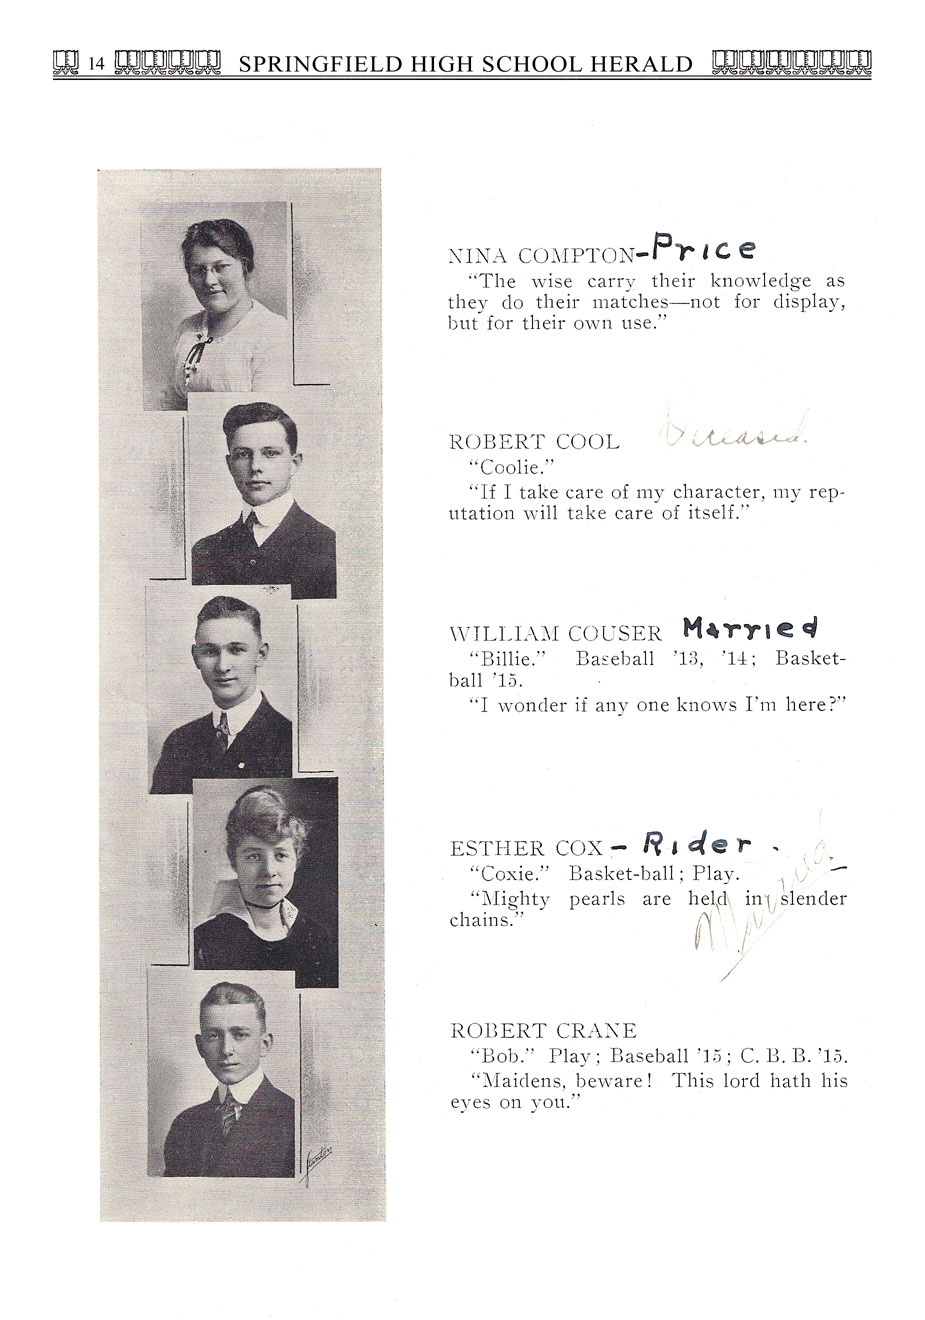 14 SPRINGFIELD HIGH SCHOOL HERALD
NINA COMPTON-Price
"The wise carry their knowledge as
they do their matches—not for display,
but for their own use."
ROBERT COOL Deceased.
"Coolie."
"If I take care of my character, my rep-
utation will take care of itself."
WILLIAM COUSER Married
"Billie." Baseball '13, '14; Basket-
ball '15.
"I wonder if any one knows I'm here?"
ESTHER COX - Rider.
"Coxie." Basket-ball; Play.
"Mighty pearls are held in slender
chains."
Married.
ROBERT CRANE
"Bob." Play; Baseball '15; C. B. B. '15.
"Maidens, beware! This lord hath his
eyes on you."